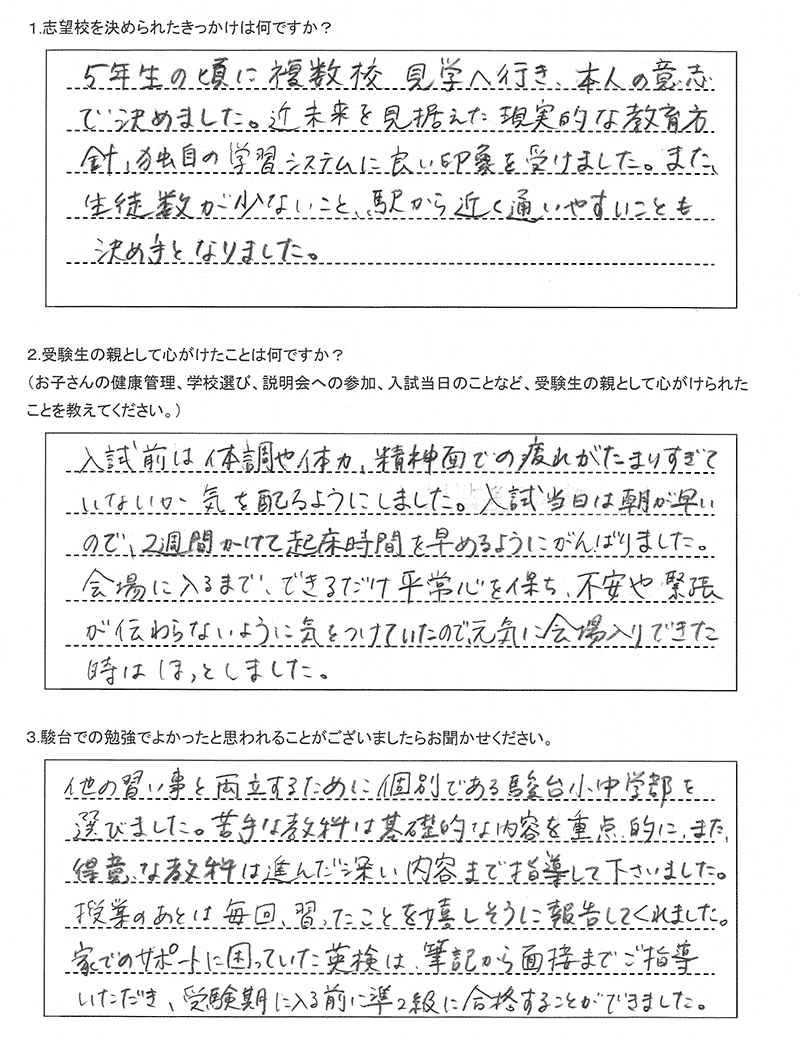 1.志望校を決められたきっかけは何ですか？
5年生の頃に複数校 見学へ行き、本人の意志
で決めました。近未来を見据えた現実的な教育方
針、独自の学習システムに良い印象を受けました。また、
生徒数が少ないこと、駅から近く通いやすいことも
決め手となりました。
2.受験生の親として心がけたことは何ですか？
（お子さんの健康管理、学校選び、説明会への参加、入試当日のことなど、受験生の親として心がけられた
ことを教えてください。）
入試前は体調や体力、精神面での疲れがたまりすぎて
いないか気を配るようにしました。入試当日は朝が早い
ので、2週間かけて起床時間を早めるようにがんばりました。
会場に入るまで、できるだけ平常心を保ち、不安や緊張
が伝わらないように気をつけていたので、元気に会場入りできた
時はほっとしました。
3.駿台での勉強でよかったと思われることがございましたらお聞かせください。
他の習い事と両立するために個別である駿台小中学部を
選びました。苦手な教科は基礎的な内容を重点的に、また、
得意な教科は進んだ深い内容まで指導して下さいました。
授業のあとは毎回、習ったことを嬉しそうに報告してくれました。
家でのサポートに困っていた英検は、筆記から面接までご指導
いただき、受験期に入る前に準2級に合格することができました。